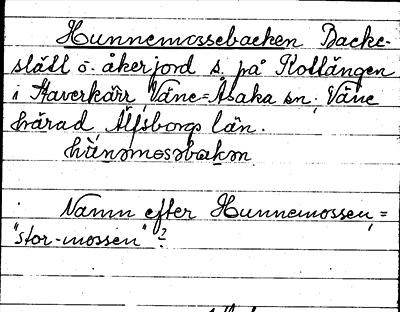 Hunnemossebacken Backe-
slätt o. åkerjord s. på Kollängen
i Haverkärr, Väne-Åsaka sn., Väne
härad, Älfsborgs län.
hùnəmosəbakən
Namn efter Hunnemossen, =
"stor-mossen"?